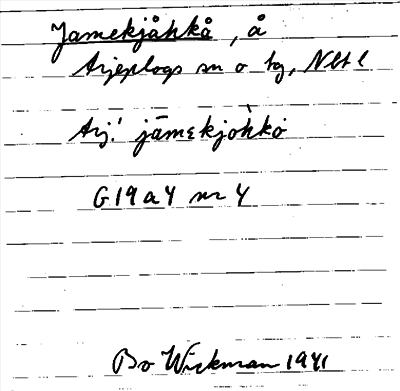 Jamekjåhkå, å
Arjeplogs sn o tg, Nbtl
Arj.! jāmεkjòhkȯ
G19a4 nr 4
Bo Wickman 1941